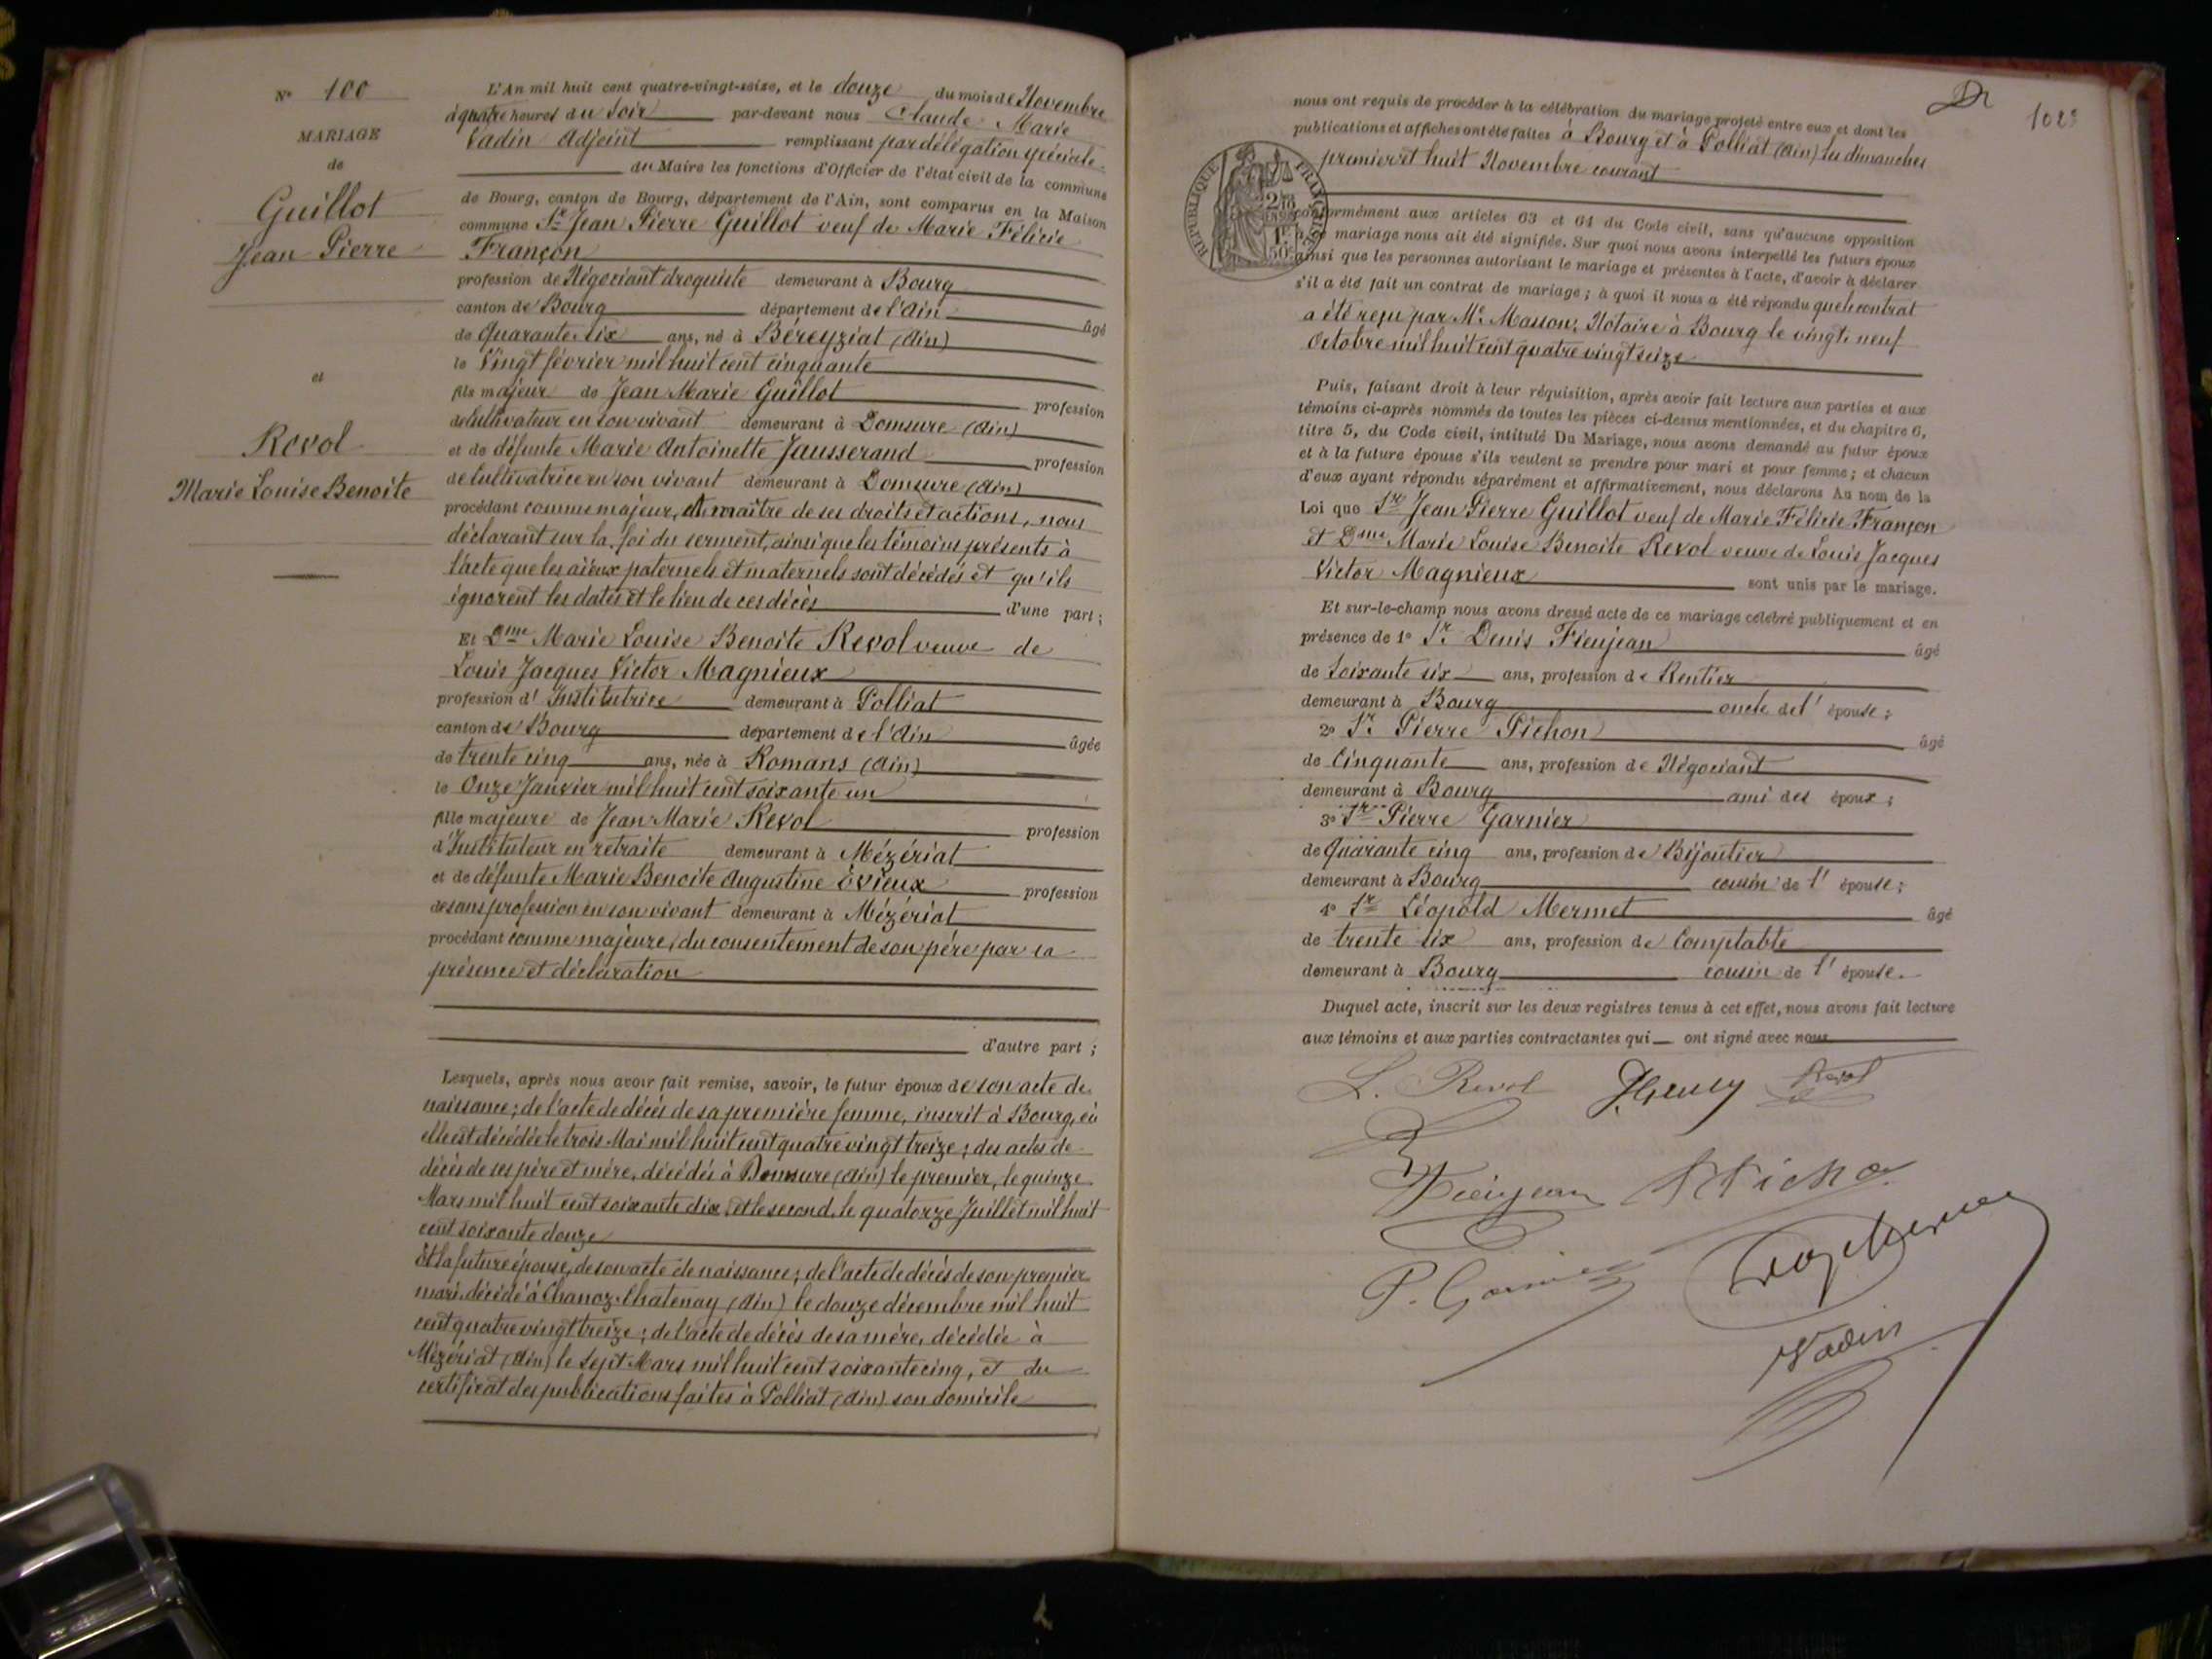 N° 100
MARIAGE
de
Guillot
Jean Pierre
et
Revol
Marie Louise Benoite
L'An mil huit cent quatre-vingt-seize, et le douze du mois de Novembre
à quatre heures du soir par-devant nous Claude Marie
Vadin Adjoint remplissant par délégation spéciale
du Maire les fonctions d'Officier de l'état civil de la commune
de Bourg, canton de Bourg, département de l'Ain, sont comparus en la Maison
commune Sr Jean Pierre Guillot veuf de Marie Félicie
Françon
profession de Négociant droguiste demeurant à Bourg
canton de Bourg département de l'Ain âgé
de Quarante six ans, né à Béreyziat (Ain)
le Vingt février mil huit cent cinquante
fils majeur de Jean Marie Guillot profession
de Cultivateur en son vivant demeurant à Domsure (Ain)
et de défunte Marie Antoinette Jausserand profession
de Cultivatrice en son vivant demeurant à Domsure (Ain)
procédant comme majeur, et maître de ses droits et actions, nous
déclarant sur la foi du serment, ainsi que les témoins présents à
l'acte que les aïeux paternels et maternels sont décédés et qu'ils
ignorent les dates et le lieu de ces décès d'une part ;
Et Dme Marie Louise Benoite Revol veuve de
Louis Jacques Victor Magnieux
profession d'Institutrice demeurant à Polliat
canton de Bourg département de l'Ain âgée
de trente cinq ans, née à Romans (Ain)
le Onze Janvier mil huit cent soixante un
fille majeure de Jean Marie Revol profession
d'Instituteur en retraite demeurant à Mézériat
et de défunte Marie Benoite Augustine Evieux profession
de sans profession en son vivant demeurant à Mézériat
procédant comme majeure, du consentement de son père par sa
présence et déclaration
d'autre part ;
Lesquels, après nous avoir fait remise, savoir, le futur époux de son acte de
naissance ; de l'acte de décès de sa première femme, inscrit à Bourg, où
elle est décédée le trois Mai mil huit cent quatre vingt treize ; des actes de
décès de ses père et mère, décédés à Domsure (Ain) le premier, le quinze
Mars mil huit cent soixante dix, et le second, le quatorze Juillet mil huit
cent soixante douze
Et la future épouse, de son acte de naissance ; de l'acte de décès de son premier
mari, décédé à Chanoz-Chatenay (Ain) le douze décembre mil huit
cent quatre vingt treize ; de l'acte de décès de sa mère, décédée à
Mézériat (Ain) le sept Mars mil huit cent soixante cinq, et du
certificat des publications faites à Polliat (Ain) son domicile
REPUBLIQUE FRANÇAISE
50c
nous ont requis de procéder à la célébration du mariage projeté entre eux et dont les
publications et affiches ont été faites à Bourg et à Polliat (Ain) les dimanches
premier et huit Novembre courant
conformément aux articles 63 et 64 du Code civil, sans qu'aucune opposition
mariage nous ait été signifiée. Sur quoi nous avons interpellé les futurs époux
ainsi que les personnes autorisant le mariage et présentes à l'acte, d'avoir à déclarer
s'il a été fait un contrat de mariage ; à quoi il nous a été répondu que le contrat
a été reçu par Me Masson, Notaire à Bourg le vingt neuf
Octobre mil huit cent quatre vingt seize
Puis, faisant droit à leur réquisition, après avoir fait lecture aux parties et aux
témoins ci-après nommés de toutes les pièces ci-dessus mentionnées, et du chapitre 6,
titre 5, du Code civil, intitulé Du Mariage, nous avons demandé au futur époux
et à la future épouse s'ils veulent se prendre pour mari et pour femme ; et chacun
d'eux ayant répondu séparément et affirmativement, nous déclarons Au nom de la
Loi que Sr Jean Pierre Guillot veuf de Marie Félicie Françon
et Dme Marie Louise Benoite Revol veuve de Louis Jacques
Victor Magnieux sont unis par le mariage.
Et sur-le-champ nous avons dressé acte de ce mariage célébré publiquement et en
présence de 1° Sr Denis Fieujean âgé
de soixante six ans, profession de Rentier
demeurant à Bourg oncle de l'épouse ;
2° Sr Pierre Pichon âgé
de Cinquante ans, profession de Négociant
demeurant à Bourg ami des époux ;
3° Sr Pierre Garnier
de Quarante cinq ans, profession de Bijoutier
demeurant à Bourg cousin de l'épouse ;
4° Sr Léopold Mermet âgé
de trente six ans, profession de Comptable
demeurant à Bourg cousin de l'épouse.
Duquel acte, inscrit sur les deux registres tenus à cet effet, nous avons fait lecture
aux témoins et aux parties contractantes qui ont signé avec nous
L. Revol Revol
Fieujean
P. Garnier
Vadin